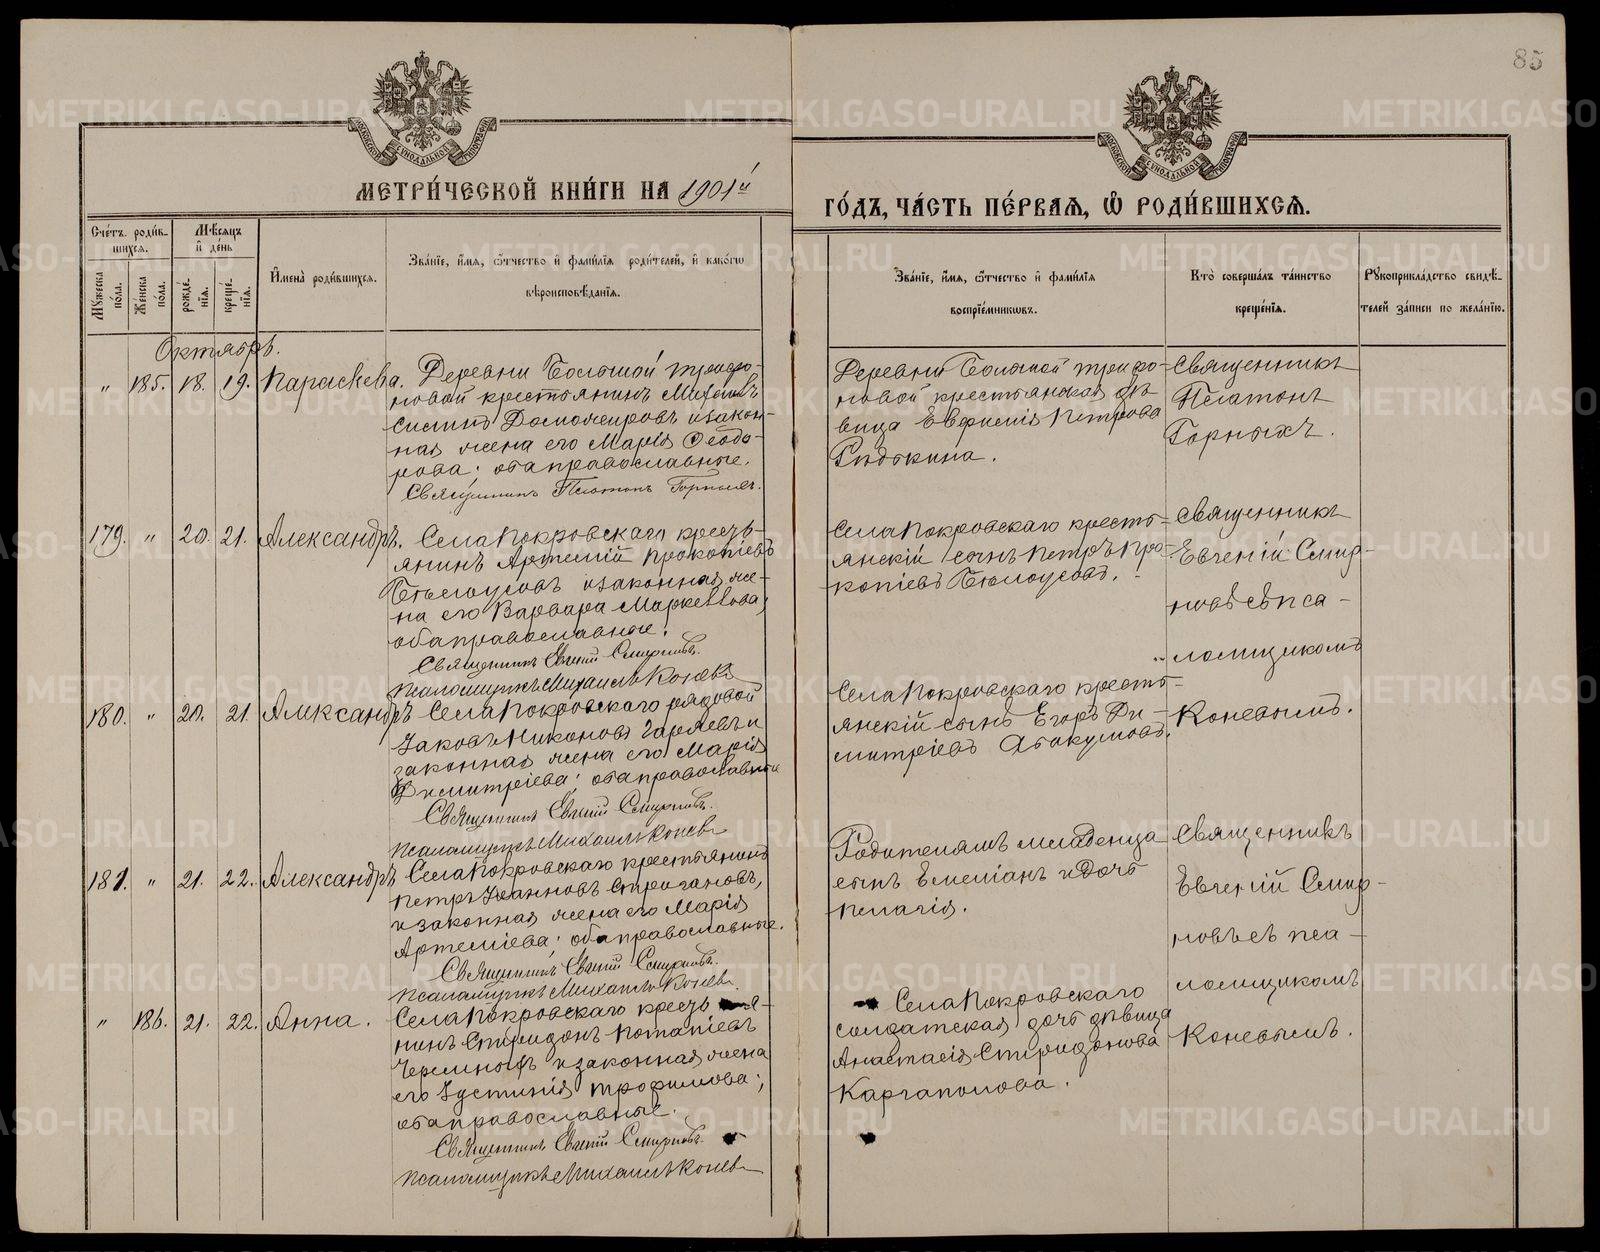 85
МОСКОВСКОЙ СѴНОДАЛЬНОЙ ТИПОГРАФІИ
МОСКОВСКОЙ СѴНОДАЛЬНОЙ ТИПОГРАФІИ
МЕТРИ́ЧЕСКОЙ КНИ́ГИ НА 1901й
ГО́ДЪ, ЧА́СТЬ ПЕ́РВАЯ, Ѿ РОДИ́ВШИХСЯ.
Сче́тъ роди́в-
шихся.
Мѣ́сяцъ
и де́нь
Мꙋжеска по́ла.
Же́нска по́ла.
рожде́нїѧ.
креще́нїѧ.
И҆мена̀ роди́вшихся.
Зва́нїе, и҆́мѧ, ѻ҆́тчество и҆ фами́лїѧ роди́телей, и҆ како́гѡ
вѣроисповѣ́данїѧ.
Зва́нїе, и҆́мѧ, ѻ҆́тчество и҆ фами́лїѧ
воспрїе́мникѡвъ.
Кто̀ соверша́лъ та́инство
креще́нїѧ.
Рꙋкоприкла́дство свидѣ́-
телей за́писи по жела́нїю.
Октябрь.
" 185. 18. 19. Параскева.
Деревни Большой Трифо-
новой крестьянинъ Михаилъ
Доможировъ и закон-
ная жена его Марія Ѳеодо-
рова; оба православные.
Священникъ Платонъ Горныхъ.
Деревни Большой Трифо-
новой крестьянская дѣ-
вица Евфимія Петрова
Священникъ
Платонъ
Горныхъ.
179. " 20. 21. Александръ.
Села Покровскаго кресть-
янинъ Артемій Прокопіевъ
Бѣлоусовъ и законная же-
на его Варвара Маркеллова;
оба православные.
Священникъ Евгеній Смирновъ.
Псаломщикъ Михаилъ Коневъ
Села Покровскаго кресть-
янскій сынъ Петръ Про-
копіевъ Бѣлоусовъ.
Священникъ
Евгеній Смир-
новъ съ пса-
ломщикомъ
Коневымъ.
180. " 20. 21. Александръ
Села Покровскаго рядовой
Іаковъ Никоновъ Гаряевъ и
законная жена его Марія
Димитріева; оба православные
Священникъ Евгеній Смирновъ.
Псаломщикъ Михаилъ Коневъ
Села Покровскаго кресть-
янскій сынъ Егоръ Ди-
митріевъ Абакумовъ.
181. " 21. 22. Александръ
Села Покровскаго крестьянинъ
Петръ Іоанновъ Стригановъ,
и законная жена его Марія
Артеміева; оба православные.
Священникъ Евгеній Смирновъ.
Псаломщикъ Михаилъ Коневъ.
Родителямъ младенца
сынъ Емеліанъ и дочь
Пелагія.
Священникъ
Евгеній Смир-
новъ съ пса-
ломщикомъ
Коневымъ.
" 186. 21. 22. Анна.
Села Покровскаго кресть-я-
нинъ Спиридонъ Потапіевъ
Черемныхъ и законная жена
его Іустинія Трофимова;
оба православные.
Священникъ Евгеній Смирновъ.
Псаломщикъ Михаилъ Коневъ
Села Покровскаго
солдатская дочь дѣвица
Анастасія Спиридонова
Каргаполова.
METRIKI.GASO-URAL.RU